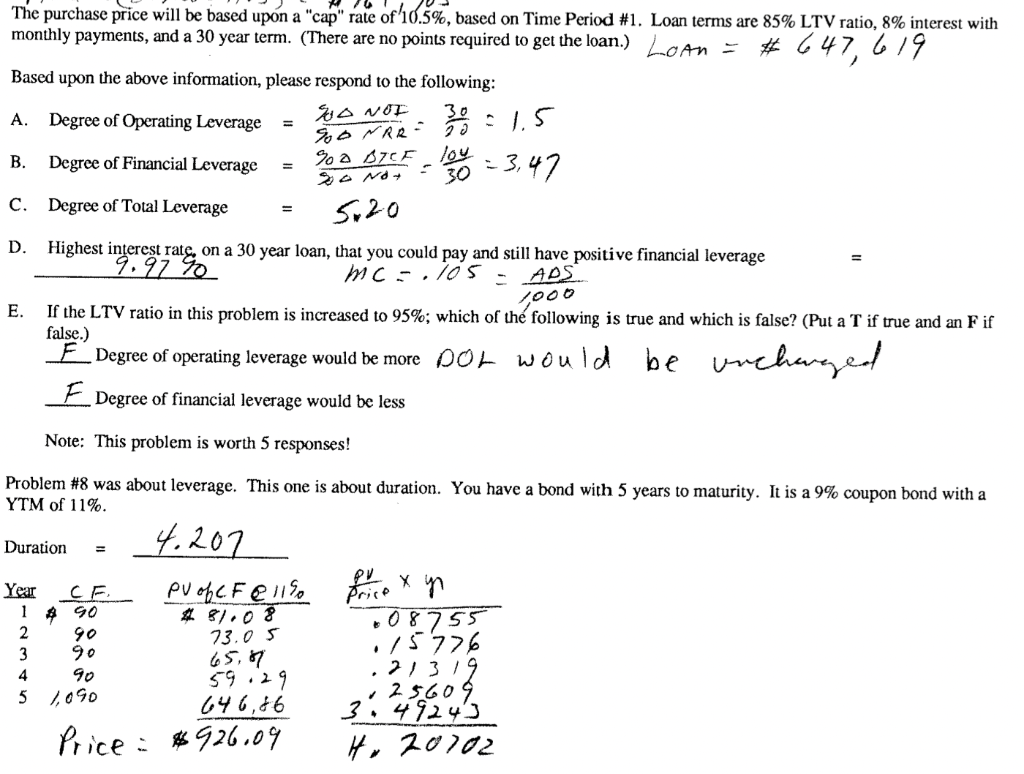 The purchase price will be based upon a "cap" rate of 10.5%, based on Time Period #1. Loan terms are 85% LTV ratio, 8% interest with
monthly payments, and a 30 year term. (There are no points required to get the loan.) LOAN = # 647,619
Based upon the above information, please respond to the following:
A. Degree of Operating Leverage = %Δ NOI / %Δ NRR = 30 / 20 = 1.5
B. Degree of Financial Leverage = %Δ BTCF / %Δ NOI = 104 / 30 = 3.47
C. Degree of Total Leverage = 5.20
D. Highest interest rate, on a 30 year loan, that you could pay and still have positive financial leverage =
9.97 % MC = .105 = ADS / 1,000
E. If the LTV ratio in this problem is increased to 95%; which of the following is true and which is false? (Put a T if true and an F if
false.)
F Degree of operating leverage would be more DOL would be unchanged
F Degree of financial leverage would be less
Note: This problem is worth 5 responses!
Problem #8 was about leverage. This one is about duration. You have a bond with 5 years to maturity. It is a 9% coupon bond with a
YTM of 11%.
Duration = 4.207
Year C F. PV of CF @ 11% PV / Price x yr
1 $ 90 $ 81.08 .08755
2 90 73.05 .15776
3 90 65.81 .21319
4 90 59.29 .25609
5 1,090 646.86 3.49243
Price = $926.09 4.20702